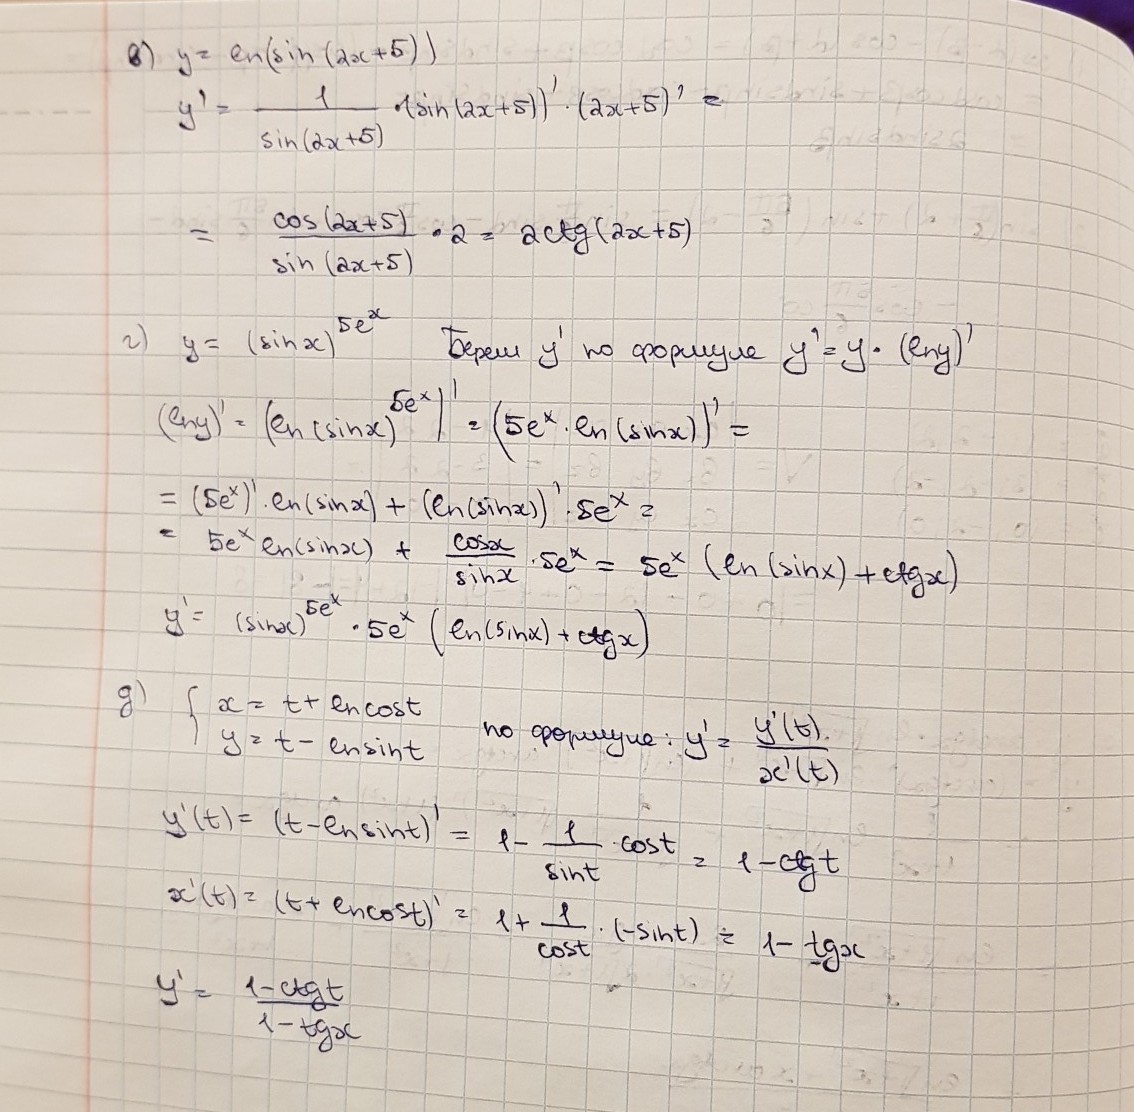 в) y = ln(sin(2x+5))
y' = 1/sin(2x+5) · (sin(2x+5))' · (2x+5)' =
= cos(2x+5)/sin(2x+5) · 2 = 2ctg(2x+5)
г) y = (sinx)^(5e^x) Берем y' по формуле y' = y · (lny)'
(lny)' = (ln(sinx)^(5e^x))' = (5e^x · ln(sinx))' =
= (5e^x)' · ln(sinx) + (ln(sinx))' · 5e^x =
= 5e^x ln(sinx) + cosx/sinx · 5e^x = 5e^x (ln(sinx) + ctgx)
y' = (sinx)^(5e^x) · 5e^x (ln(sinx) + ctgx)
д) { x = t + lncost
y = t - lnsint по формуле: y' = y'(t)/x'(t)
y'(t) = (t-lnsint)' = 1 - 1/sint · cost = 1-ctgt
x'(t) = (t+lncost)' = 1 + 1/cost · (-sint) = 1 - tgx
y' = 1-ctgt/1-tgx